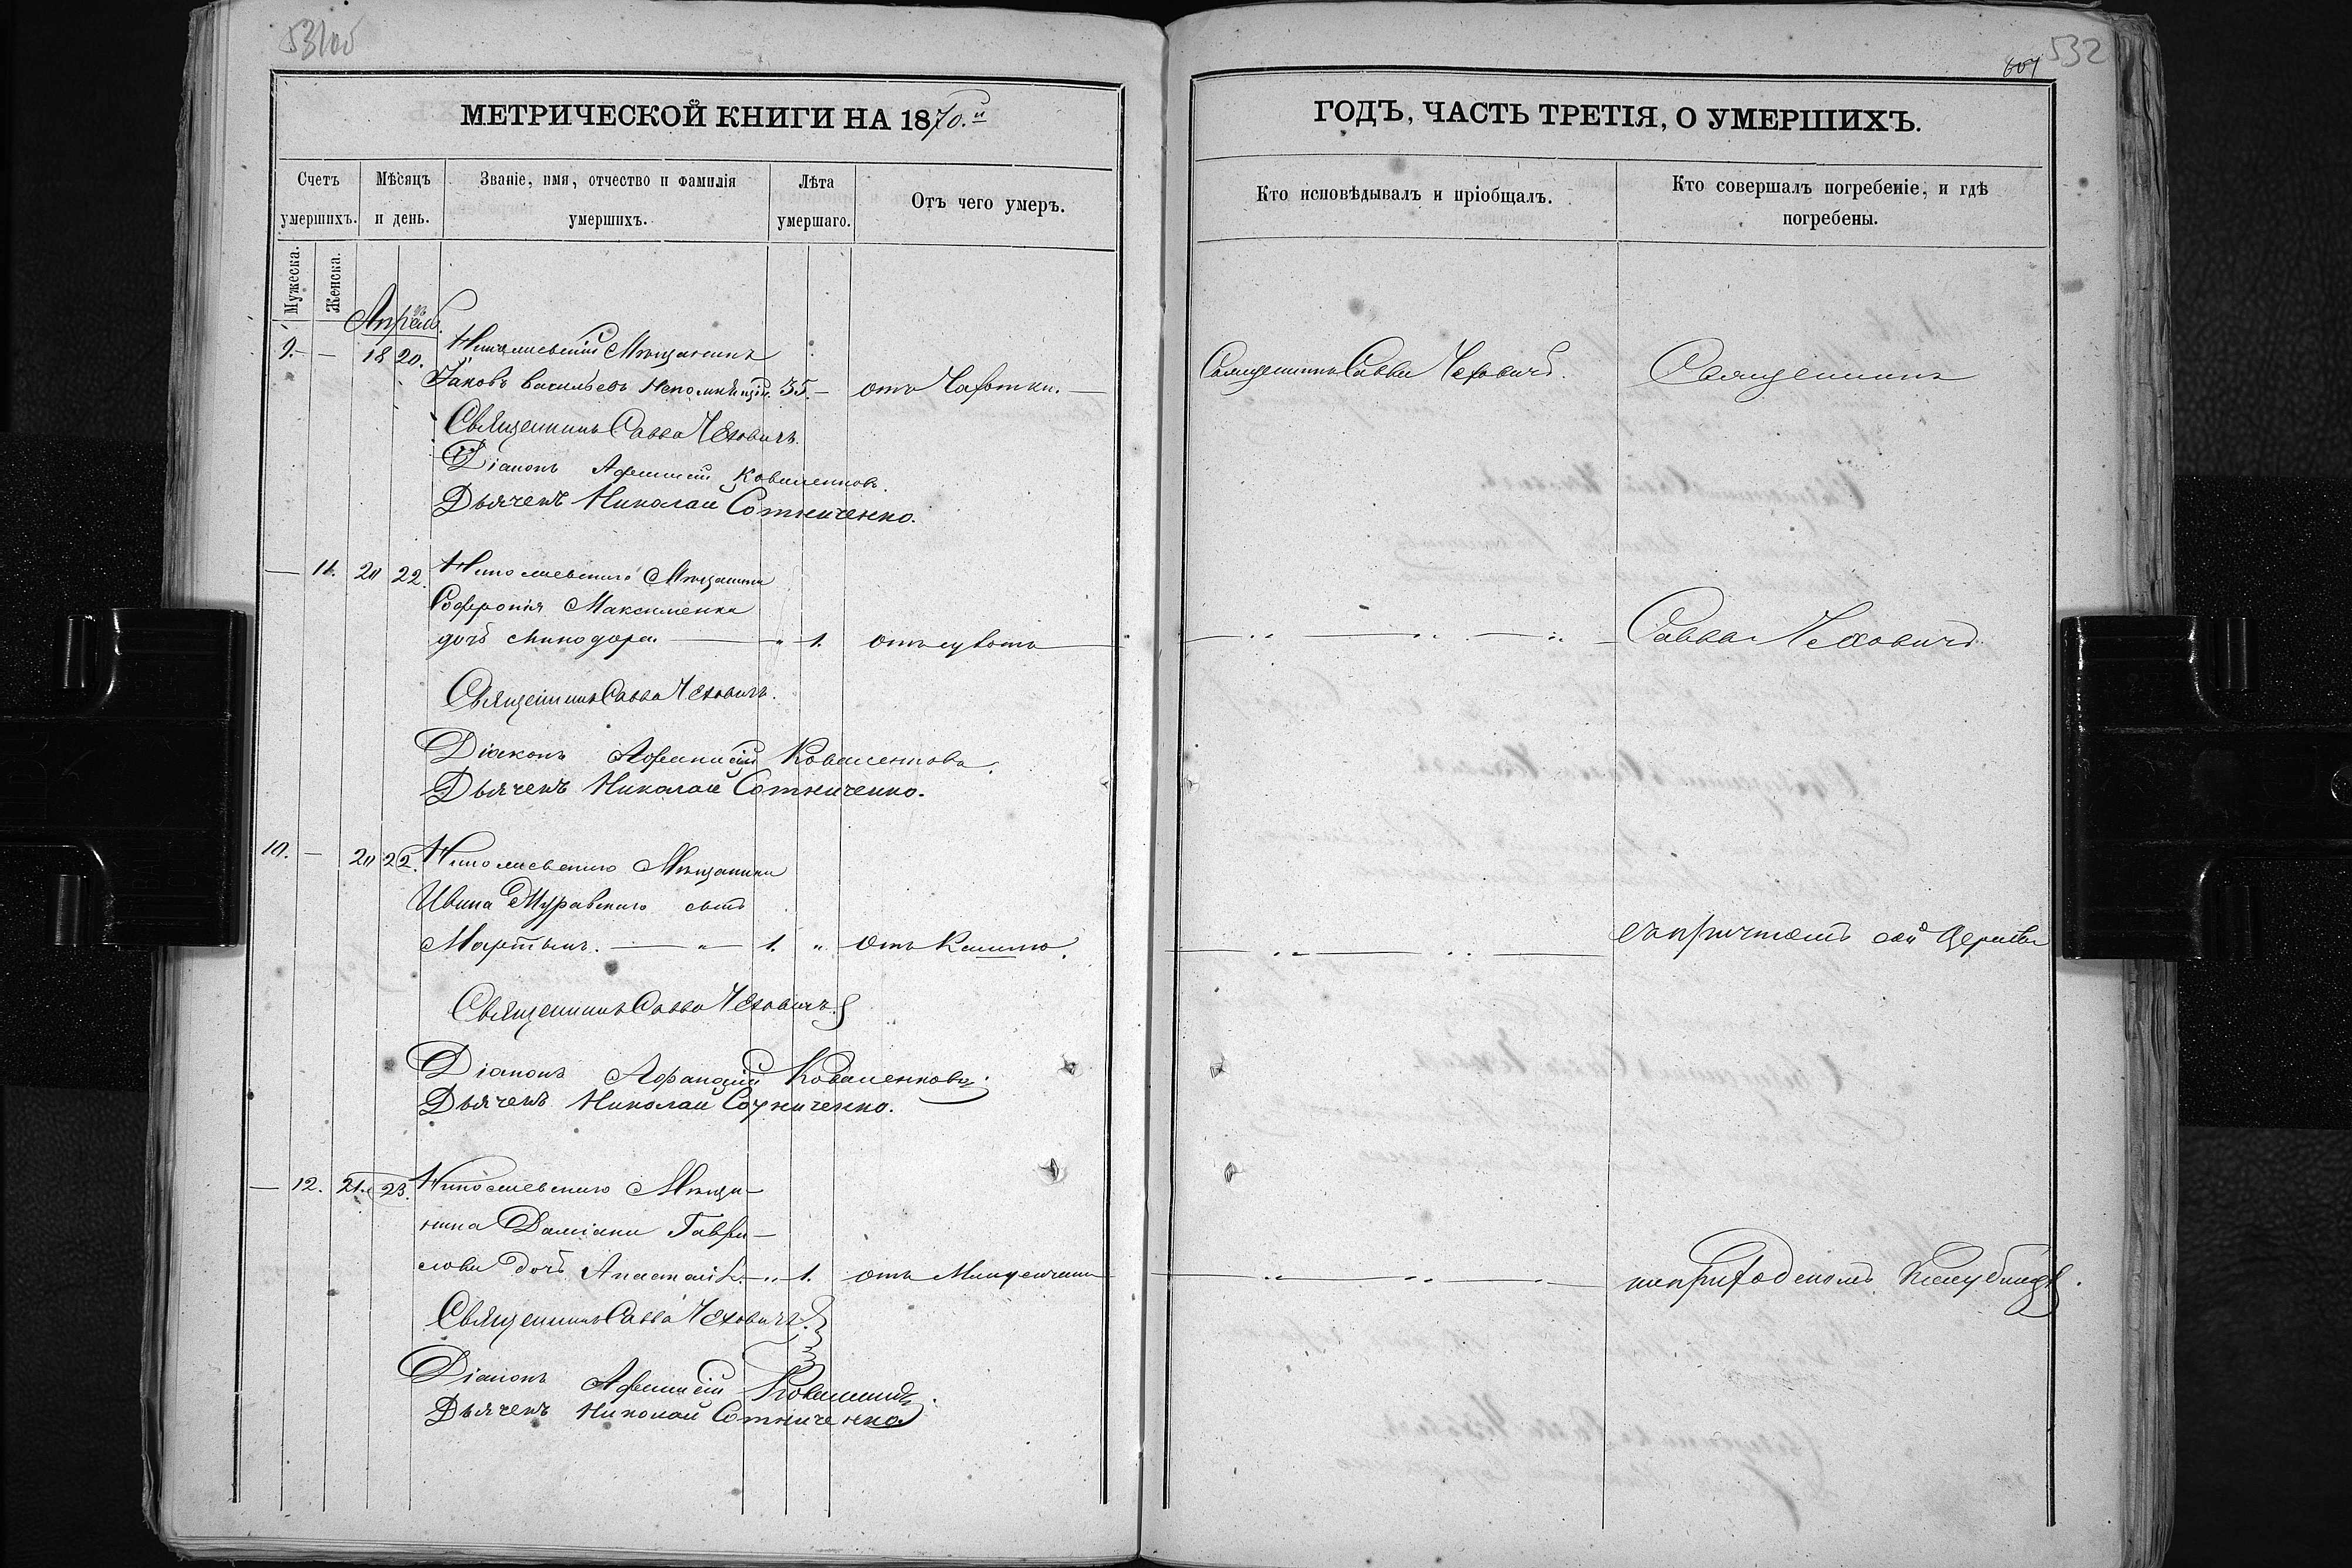 МЕТРИЧЕСКОЙ КНИГИ НА 1870.й
Счетъ умершихъ.
Мѣсяцъ и день.
Званіе, имя, отчество и фамилія умершихъ.
Лѣта умершаго.
Отъ чего умеръ.
Мужеска.
Женска.
Апрель.
9. — 18 20. Николаевскій Мѣщанинъ
Іаковъ Васильевъ 35. — отъ Чахотки. —
Священникъ Савва Чехович.
Діаконъ Афанасій Коваленковъ.
Дьячекъ Николай Сотниченко.
— 11. 20 22. Николаевскаго Мѣщанина
Софронія Максименка
дочь Минодора — " 1.
Священникъ Савва Чеховичъ.
Діаконъ Афанасій Коваленковъ.
Дьячекъ Николай Сотниченко.
10. — 20 22. Николаевскаго Мѣщанина
Ивана Муравскаго сынъ
Мартынъ. — " — 1. " отъ Кашлю.
Священникъ Савва Чеховичъ
Діаконъ Афанасій Коваленковъ.
Дьячекъ Николай Сотниченко.
— 12. 21. 23. Николаевскаго Мѣща-
нина Даміана Гаври-
лова дочь Анастасія. — " 1. отъ Младенчества
Священникъ Савва Чеховичъ.
Діаконъ Афанасій
Дьячекъ Николай Сотниченко
532
601
ГОДЪ, ЧАСТЬ ТРЕТІЯ, О УМЕРШИХЪ.
Кто исповѣдывалъ и пріобщалъ.
Кто совершалъ погребеніе, и гдѣ погребены.
Священникъ Савва Чеховичъ.
Священникъ
Савва Чеховичъ
съ причтомъ сей Церкви
на приходскомъ Кладбищѣ.